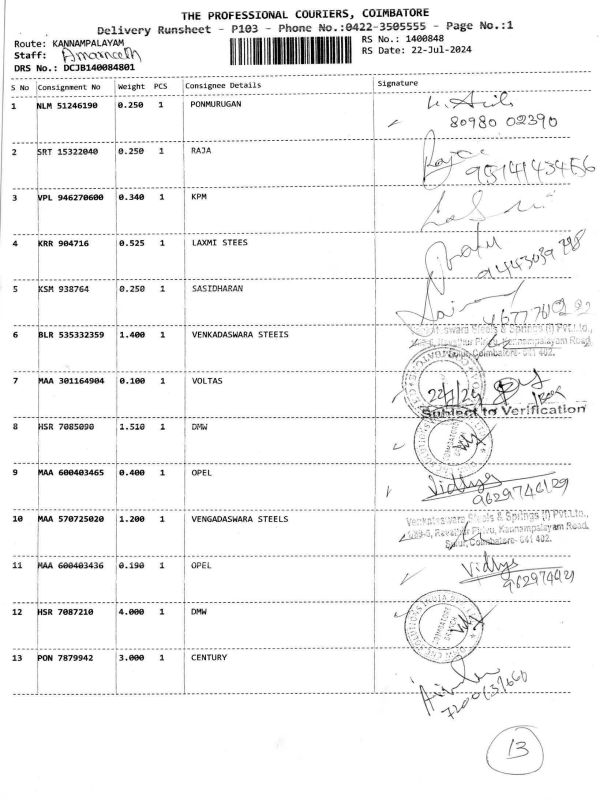 THE PROFESSIONAL COURIERS, COIMBATORE
Delivery Runsheet - P103 - Phone No.:0422-3505555 - Page No.:1
Route: KANNAMPALAYAM
RS No.: 1400848
Staff: Amarnath
RS Date: 22-Jul-2024
DRS No.: DCJB140084801
S No Consignment No Weight PCS Consignee Details Signature
1 NLM 51246190 0.250 1 PONMURUGAN
80980 02390
2 SRT 15322040 0.250 1 RAJA
Raja
9514143456
3 VPL 946270600 0.340 1 KPM
4 KRR 904716 0.525 1 LAXMI STEES
9443039298
5 KSM 938764 0.250 1 SASIDHARAN
6 BLR 535332359 1.400 1 VENKADASWARA STEEIS
Venkateswara Steels & Springs (I) Pvt.Ltd.,
Kannampalayam Road,
Sulur, Coimbatore- 641 402.
7 MAA 301164904 0.100 1 VOLTAS
22/7/24
Subject to Verification
8 HSR 7085090 1.510 1 DMW
9 MAA 600403465 0.400 1 OPEL
Vidhya
9629746129
10 MAA 570725020 1.200 1 VENGADASWARA STEELS
Venkateswara Steels & Springs (I) Pvt.Ltd.,
Kannampalayam Road,
Sulur, Coimbatore- 641 402.
11 MAA 600403436 0.190 1 OPEL
Vidhya
12 HSR 7087210 4.000 1 DMW
13 PON 7879942 3.000 1 CENTURY
13